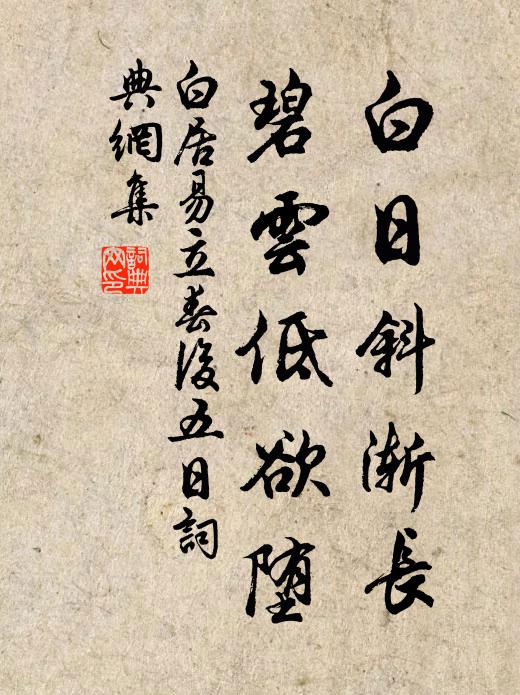 白日斜漸長
碧雲低欲堕
白居易立春後五日詞
典網集
詞典網印